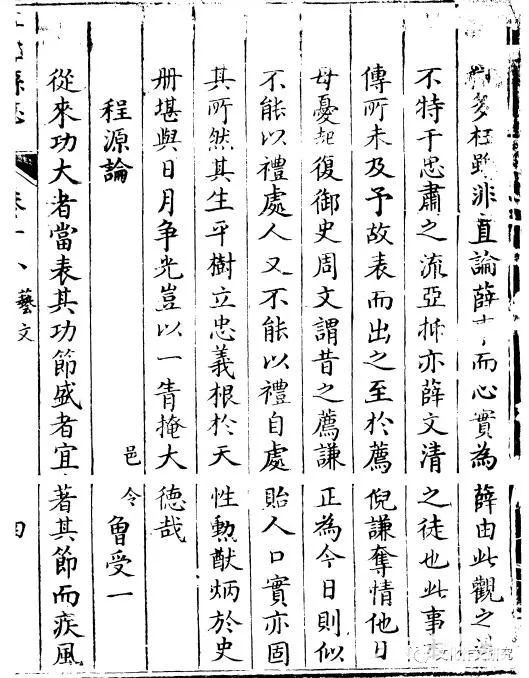 多枉非直論薛而心實為薛由此觀之
不特于忠肅之流亞抑亦薛文清之徒也此事
傳所未及予故表而出之至於薦倪謙奪情他日
母憂起復御史周文謂昔之薦謙正為今日則似
不能以禮處人又不能以禮自處貽人口實亦固
其所然其生平樹立忠義根於天性勳猷炳於史
册堪與日月争光豈以一眚掩大德哉
程源論 邑令 魯受一
從來功大者當表其功節盛者宜著其節而疾風
縣志 卷十 藝文